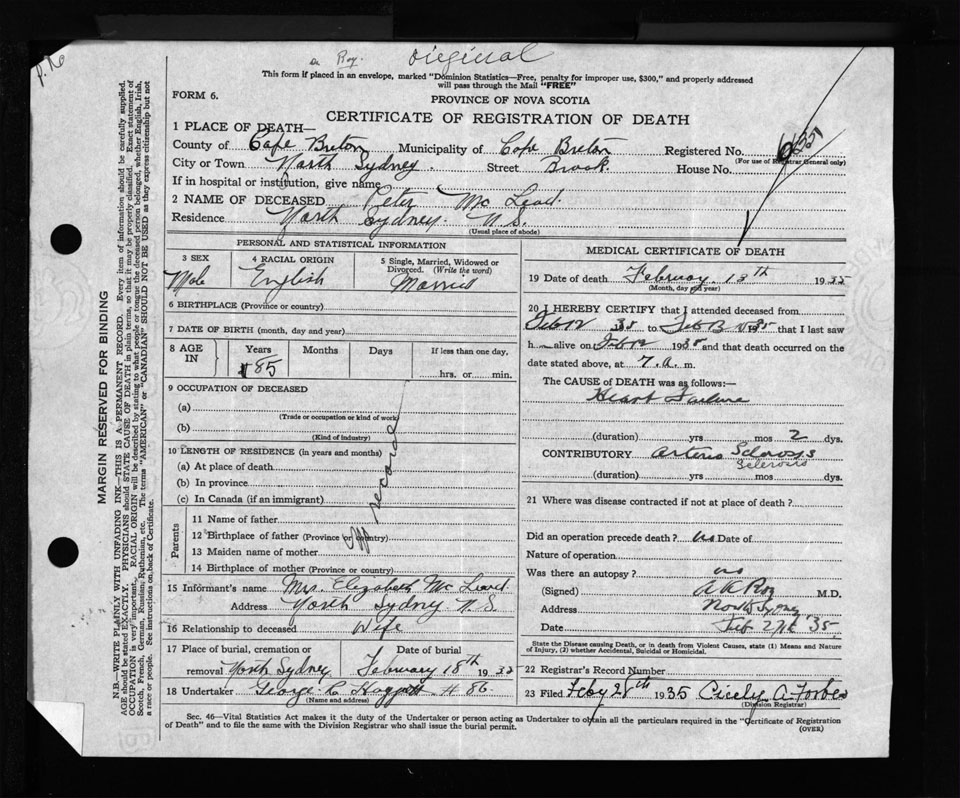 Original
This form if placed in an envelope, marked "Dominion Statistics—Free, penalty for improper use, $300," and properly addressed
will pass through the Mail "FREE"
FORM 6.
PROVINCE OF NOVA SCOTIA
CERTIFICATE OF REGISTRATION OF DEATH
1 PLACE OF DEATH—
County of Cape Breton Municipality of Cape Breton Registered No.
(For use of Registrar General only)
City or Town North Sydney. Street Brook. House No.
If in hospital or institution, give name
2 NAME OF DECEASED Peter Mc Leod.
Residence North Sydney. N.S.
(Usual place of abode)
PERSONAL AND STATISTICAL INFORMATION
3 SEX 4 RACIAL ORIGIN 5 Single, Married, Widowed or Divorced. (Write the word)
Male English Married
6 BIRTHPLACE (Province or country)
7 DATE OF BIRTH (month, day and year)
8 AGE IN Years Months Days If less than one day,
85 hrs. or min.
9 OCCUPATION OF DECEASED
(a)
(Trade or occupation or kind of work)
(b)
(Kind of industry)
10 LENGTH OF RESIDENCE (in years and months)
(a) At place of death
(b) In province
(c) In Canada (if an immigrant)
record
Parents
11 Name of father
12 Birthplace of father (Province or country)
13 Maiden name of mother
14 Birthplace of mother (Province or country)
15 Informant's name Mrs. Elizabeth Mc Leod
Address North Sydney N.S.
16 Relationship to deceased Wife
17 Place of burial, cremation or Date of burial
removal North Sydney February 18th 19
18 Undertaker George C
(Name and address)
MEDICAL CERTIFICATE OF DEATH
19 Date of death February. 13th 19
(Month, day and year)
20 I HEREBY CERTIFY that I attended deceased from
35 to 1935 that I last saw
h alive on 1935 and that death occurred on the
date stated above, at 7. a. m.
The CAUSE of DEATH was as follows:—
Heart Failure
(duration) yrs mos 2 dys.
CONTRIBUTORY Arterio Sclerosis
Sclerosis
(duration) yrs. mos. dys.
21 Where was disease contracted if not at place of death?
Did an operation precede death? no Date of
Nature of operation
Was there an autopsy? no
(Signed) A R Roy M.D.
Address North Sydney
Date Feb 27th '35
State the Disease causing Death, or in death from Violent Causes, state (1) Means and Nature of Injury, (2) whether Accidental, Suicidal or Homicidal.
22 Registrar's Record Number
23 Filed Feby 28th 1935 Cicely A. Forbes
(Division Registrar)
Sec. 46—Vital Statistics Act makes it the duty of the Undertaker or person acting as Undertaker to obtain all the particulars required in the "Certificate of Registration
of Death" and to file the same with the Division Registrar who shall issue the burial permit.
(OVER)
MARGIN RESERVED FOR BINDING
N.B.—WRITE PLAINLY WITH UNFADING INK—THIS IS A PERMANENT RECORD. Every item of information should be carefully supplied.
AGE should be stated EXACTLY. PHYSICIANS should STATE CAUSE OF DEATH in plain terms, so that it may be properly classified. Exact statement of
OCCUPATION is very important. RACIAL ORIGIN will be described by stating to what people or tongue the deceased person belonged, whether English, Irish,
Scotch, French, German, Russian, Ruthenian, etc. The terms "AMERICAN" or "CANADIAN" SHOULD NOT BE USED as they express citizenship but not
a race or people. See instructions on back of Certificate.